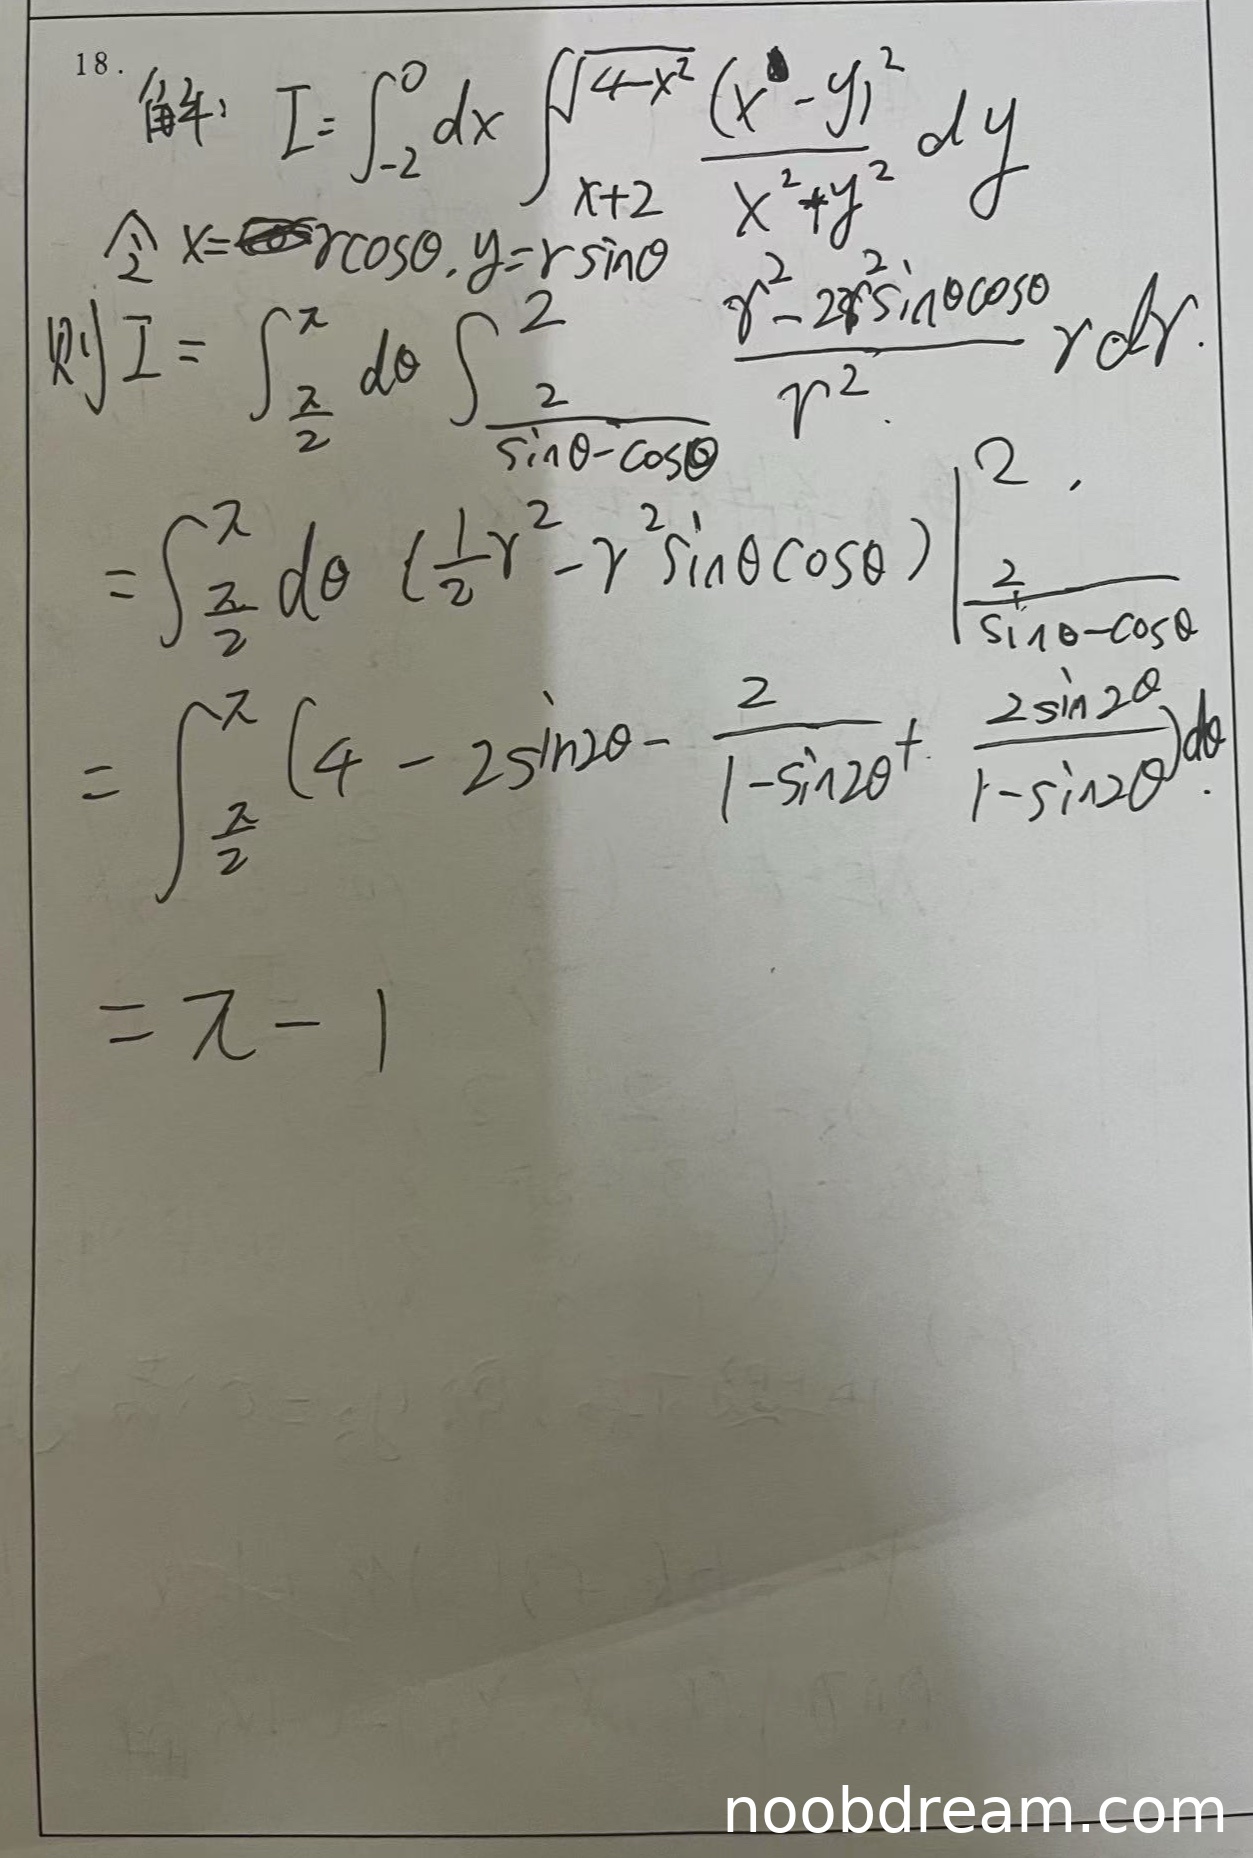 18.
解: I = ∫_{-2}^{0} dx ∫_{x+2}^{√(4-x²)} (x-y)²/(x²+y²) dy
令 x = rcosθ, y = rsinθ
则 I = ∫_{π/2}^{π} dθ ∫_{2/(sinθ-cosθ)}^{2} (r²-2r²sinθcosθ)/r² rdr.
= ∫_{π/2}^{π} dθ (1/2 r² - r²sinθcosθ) |_{2/(sinθ-cosθ)}^{2}.
= ∫_{π/2}^{π} (4 - 2sin2θ - 2/(1-sin2θ) + 2sin2θ/(1-sin2θ)) dθ.
= π - 1
noobdream.com